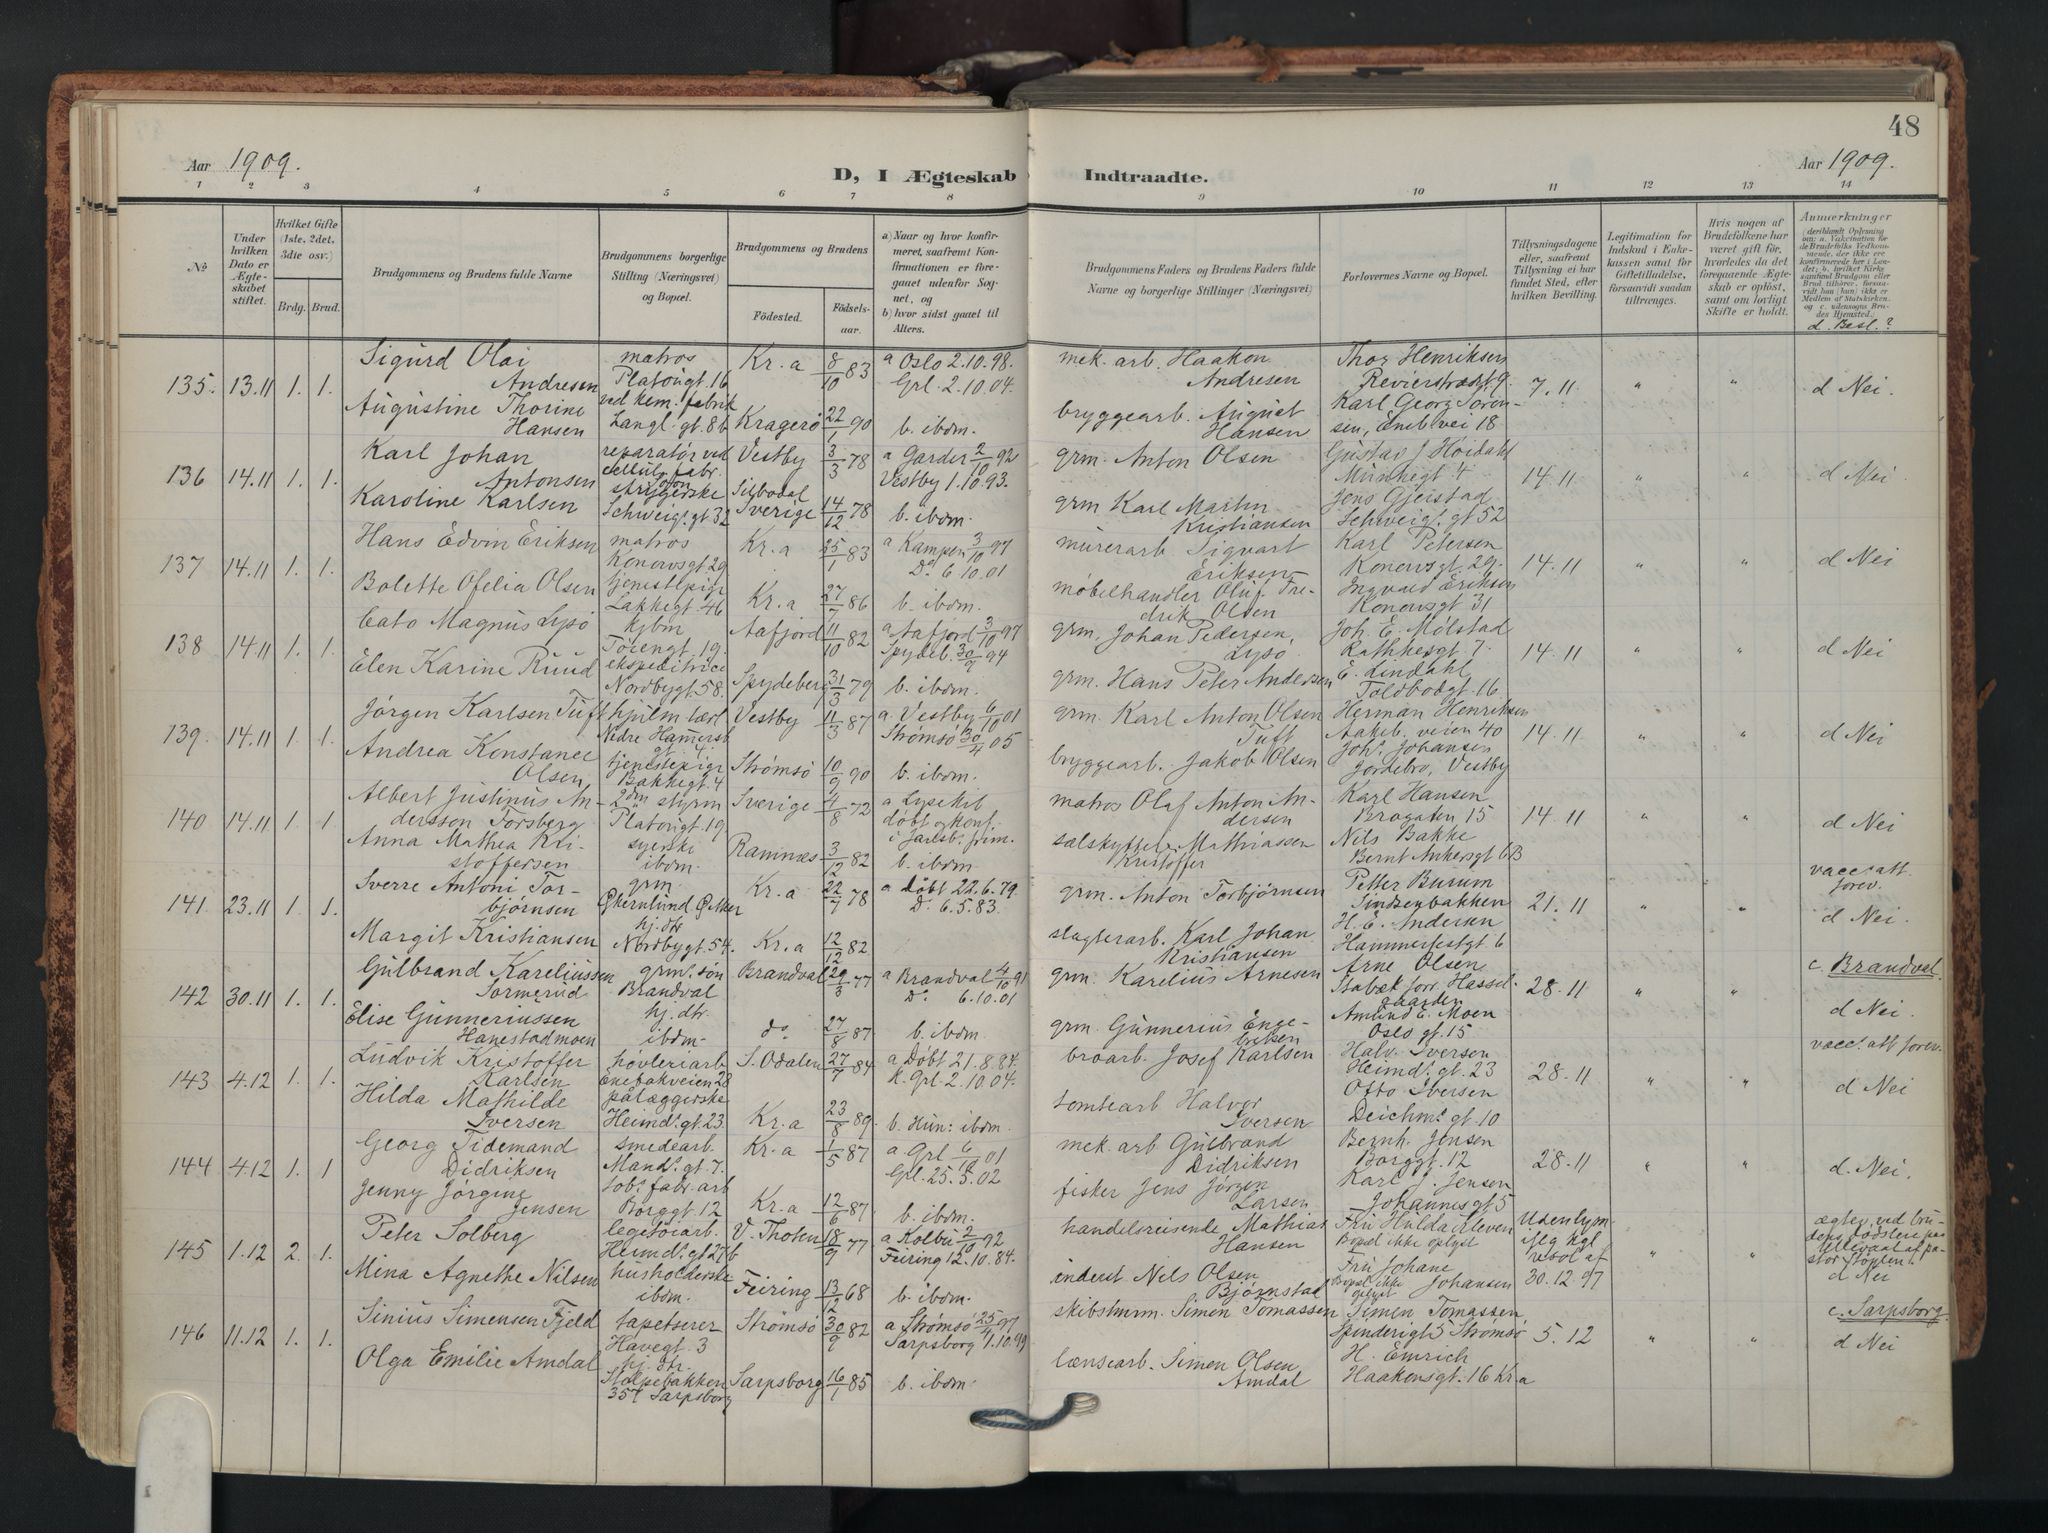 48
Aar 1909.
D, I Ægteskab Indtraadte.
Aar 1909.
1 2 3 4 5 6 7 8 9 10 11 12 13 14
№
Under hvilken Dato er Ægteskabet stiftet.
Hvilket Gifte (1ste, 2det, 3dte osv.)
Brdg. Brud.
Brudgommens og Brudens fulde Navne
Brudgommens borgerlige Stilling (Næringsvei) og Bopæl.
Brudgommens og Brudens
Födested.
Födsels-aar.
a) Naar og hvor konfirmeret, saafremt Konfirmationen er foregaaet udenfor Sognet, og
b) hvor sidst gaaet til Alters.
Brudgommens Faders og Brudens Faders fulde Navne og borgerlige Stillinger (Næringsvei)
Forlovernes Navne og Bopæl.
Tillysningsdagene eller, saafremt Tillysning ei har fundet Sted, efter hvilken Bevilling.
Legitimation for Indskud i Enkekassen samt for Giftetilladelse, forsaavidt saadan tiltrænges.
Hvis nogen af Brudefolkene har været gift før, hvorledes da det foregaaende Ægteskab er opløst, samt om lovligt Skifte er holdt.
Anmærkninger
d. Besl.?
135. 13.11 1. 1. Sigurd Olai Andresen matros Platougt. 16 Kr.a 8/10 83 a Oslo 2.10.98. Grl. 2.10.04. mek. arb. Haakon Andresen Thor Henriksen Revierstrædet 9. 7.11 " " d Nei.
Augustine Thorine Hansen ved kem. fabrik Langl. gt. 86 Kragerö 22/1 90 b. ibdm. bryggearb. August Hansen Karl Georg Sörensen, Eneb. vei 18
136 14.11 1. 1. Karl Johan Antonsen reparatör ved cellul. fabr. Vestby 3/3 78 a Garder 2/10 92 Vestby 1.10.93. grm. Anton Olsen Gustav J Höidahl Munkegt 4 14.11 " " d Nei
Karoline Karlsen strygerske Schweig. gt 32 Silbodal Sverige 14/12 78 b. ibdm. grm Karl Martin Kristiansen Jens Gjerstad Schweig. gt 52
137 14.11 1. 1. Hans Edvin Eriksen matros Konowsgt 29 Kr.a 25/1 83 a Kampen 3/10 97 Do 6.10.01 murerarb. Sigvart Eriksen Karl Petersen Konowsgt. 29. 14.11 " " d Nei
Bolette Ofelia Olsen tjenestepige Lakkegt. 46 Kr.a 27/7 86 b. ibdm. möbelhandler Oluf Fredrik Olsen Ingvald Eriksen Konowsgt 31
138 14.11 1. 1. Cato Magnus Lysö kjbm Töiengt. 19. Aafjord 11/10 82 a Aafjord 3/10 97 Spydeb. 30/9 94 grm. Johan Pedersen Lysö Joh. E. Mölstad Rathkesgt 7. 14.11 " " d Nei
Elen Karine Ruud ekspeditrice Nordbygt. 58. Spydeberg 31/3 79 b. ibdm. grm. Hans Peter Andersen E. Lindahl Toldbodgt. 16
139. 14.11 1. 1. Jörgen Karlsen Tuft Nedre Hammersb. gt. 4. Vestby 11/3 87 a. Vestby 6/10 01 Strömsö 30/4 05 grm. Karl Anton Olsen Tuft Herman Henriksen Aakeb. veien 40 14.11 " " d Nei
Andrea Konstance Olsen tjenestepige Bakkegt. 4 Strömsö 10/9 90 b. ibdm. bryggearb. Jakob Olsen Johs. Johansen Jordebro, Vestby
140 14.11 1. 1. Albert Justinus Andersson Forsberg 2den styrm Platougt. 19 Sverige 4/8 72 a Lysekil döbt og konf. i Jarlsb. prim. matros Olaf Anton Andersen Karl Hansen Brogaten 15 14.11 " " d Nei
Anna Mathea Kristoffersen syerske ibdm. Ramnes 3/12 82 b. ibdm. Kristoffer Mathiassen Nils Bakke Bernt Ankersgt 6B
141. 23.11 1. 1. Sverre Antoni Torbjörnsen grm. Økernlund Ø. Aker Kr.a 22/7 78 a Döbt 22.6.79. D. 6.5.83. grm. Anton Torbjörnsen Petter Burum 21.11 " " vacc. att. forev. d Nei.
Margit Kristiansen hj. dtr Nordbygt. 54. Kr.a 12/12 82 slagterarb. Karl Johan Kristiansen H. E. Andersen Hammerfestgt. 6
142 30.11 1. 1. Gulbrand Kareliussen Sormerud grm. sön Brandval Brandval 29/3 77 a Brandval 4/10 91 Do 6.10.01 grm. Karelius Arnesen Arne Olsen Stabæk forr. Hasselgaarden 28.11 " " c. Brandval. d Nei.
Elise Gunneriussen Hanestadmoen hj. dtr. ibdm. do 27/8 87 b. ibdm. grm. Gunnerius Engebretsen Amund E. Moen Oslo gt. 15
143 4.12 1. 1. Ludvik Kristoffer Karlsen hövleriarb Enebakveien 28 S. Odalen 27/7 84 a Döbt 21.8.84. k. Grl. 2.10.04. broarb. Josef Karlsen Halv. Iversen Heimd. gt. 23 28.11 " " vacc. att forev. d Nei
Hilda Mathilde Iversen pålæggerske Heimd. gt 23. Kr.a 23/8 89. b. Hun: ibdm. tomtearb Halvor Iversen Otto Iversen Deichm. gt. 10
144 4.12 1. 1 Georg Tidemand Didriksen smedearb. Mand. gt. 7. Kr.a 1/5 87 a Grl 6/10 01 Grl. 25.5.02 mek. arb Gulbrand Didriksen Bernh. Jensen Borggt. 12 28.11 " " d Nei.
Jenny Jörgine Jensen tob. fabr. arb Borggt. 12 Kr.a 12/6 87 b. ibdm. fisker Jens Jörgen Larsen Karl J. Jensen Johannesgt 5
145 1.12 2. 1. Peter Solberg legetöiarb. Heimd. gt 27 b V. Thoten 18/9 77 a Kolbu 2/10 92 Feiring 12.10.84. handelsreisende Mathias Hansen Fru Hulda Kleven Bopæl ikke oplyst Uden lysn. iflg kgl resol af 30.12.97 " " ægtev. ved brudens dödsleie paa Ullevaal af pastor Stöylen. d Nei
Mina Agnethe Nilsen husholderske ibdm. Feiring 13/12 68 b. ibdm. inderst Nils Olsen Björnstad Fru Johane Johansen Bopæl ikke oplyst
146 11.12 1. 1. Sinius Simensen Fjeld tapetserer Havegt. 3 Strömsö 30/9 82 a Strömsö 25/4 97 Sarpsborg 1.10.99 skibstømm. Simen Tomassen Simen Tomassen Spinderigt 5 Strömsö 5.12 " " c. Sarpsborg. d Nei
Olga Emilie Amdal hj. dtr. Stolpebakken 357 Sarpsborg Sarpsborg 16/1 85 b. ibdm. lænsearb. Simen Olsen Amdal H. Emrich Haakonsgt. 16 Kr.a